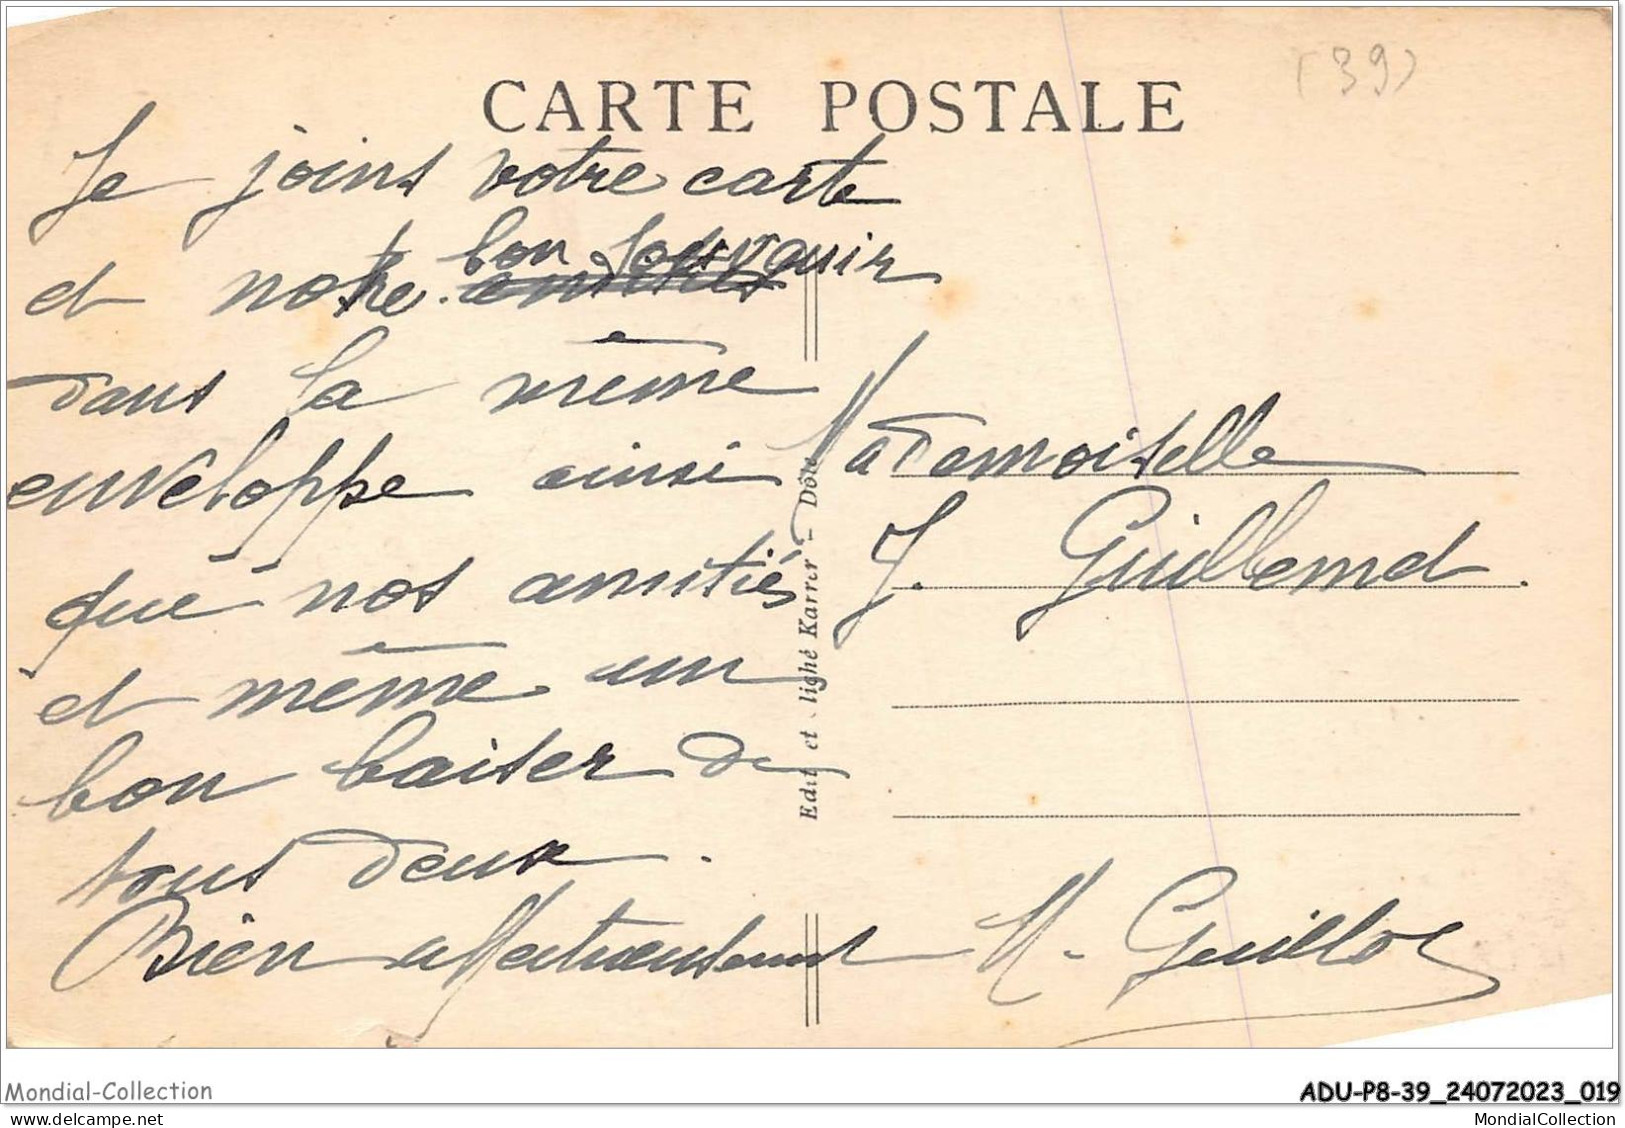 (39)
CARTE POSTALE
Je joins votre carte
et notre bon souvenir
dans la même
enveloppe ainsi
que nos amitiés
et même un
bon baiser de
tous deux.
Bien affectueusement M. Guillot
Mademoiselle
J. Guillemet.
Edit et lighé Karrer - Dôle
Mondial-Collection
ADU-P8-39_24072023_019
MondialCollection